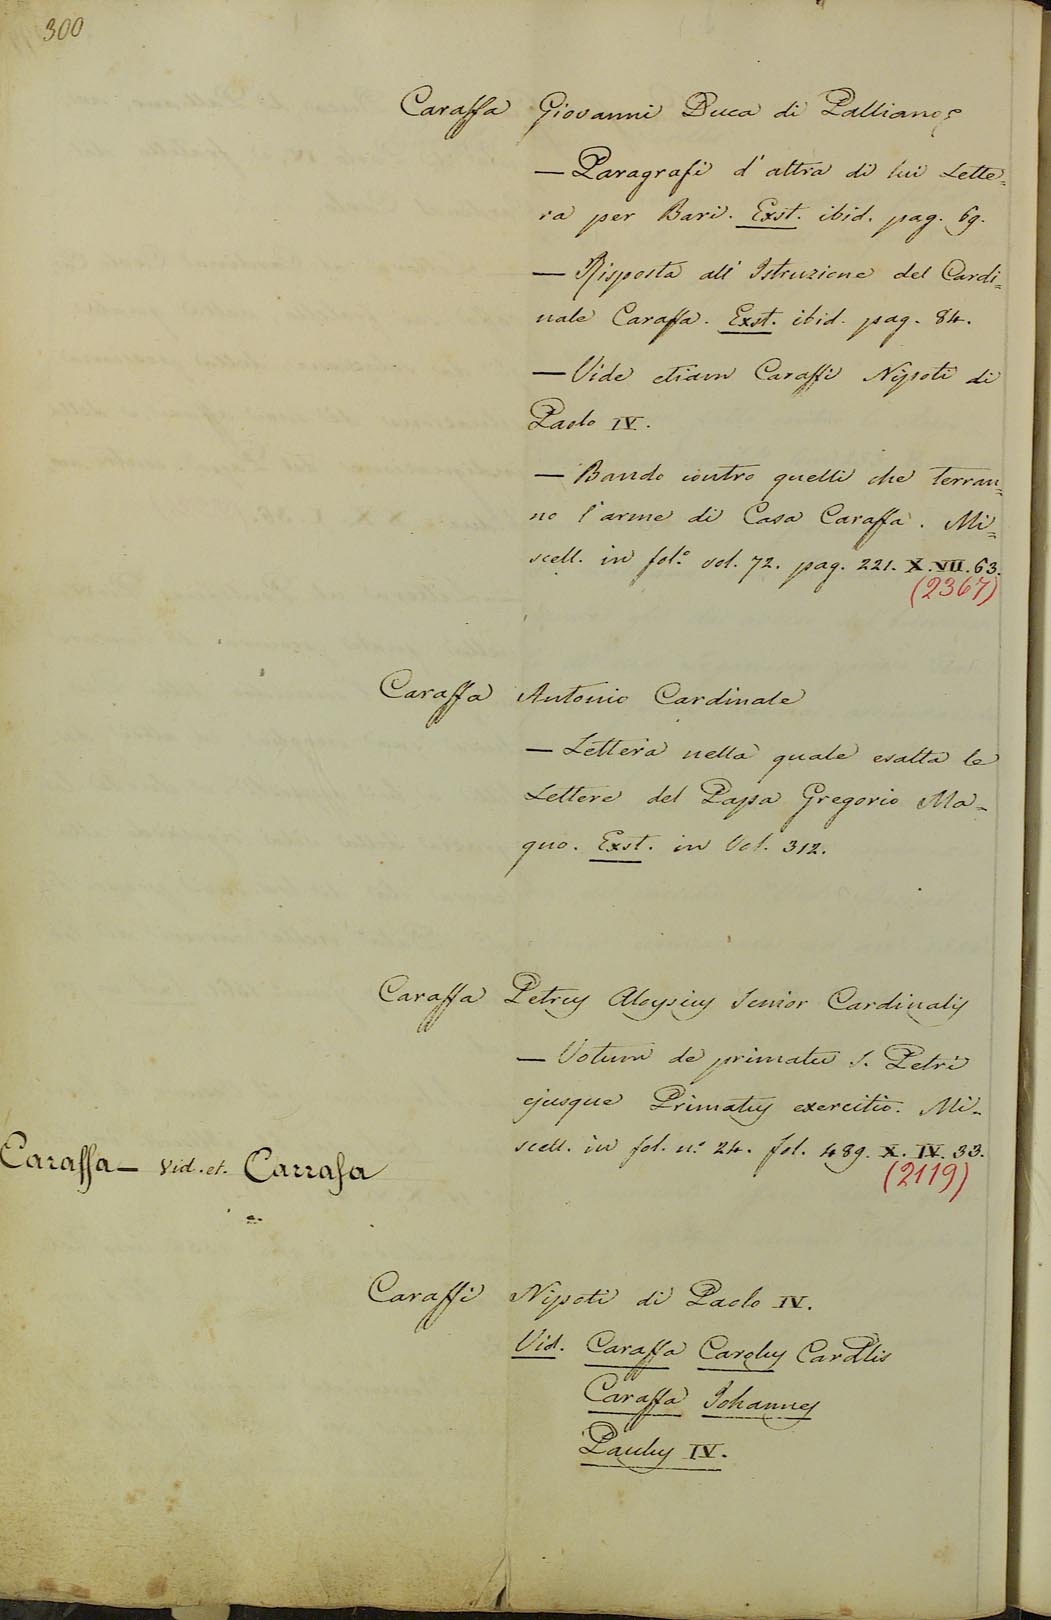 300
Caraffa Giovanni Duca di Palliano
— Paragrafi d'altra di lui Lette=
ra per Bari. Exst. ibid. pag. 69.
— Risposta all'Istruzione del Cardi=
nale Caraffa. Exst. ibid. pag. 84.
— Vide etiam Caraffi Nipoti di
Paolo IV.
— Bando contro quelli che terran=
no l'arme di Casa Caraffa. Mi=
scell. in fol.º vol. 72. pag. 221. X.VII.63.
(2367)
Caraffa Antonio Cardinale
— Lettera nella quale esalta le
Lettere del Papa Gregorio Ma=
gno. Exst. in Vol. 312.
Caraffa Petrus Aloysius Senior Cardinalis
— Votum de primatu S. Petri
ejusque Primatus exercitio. Mi-
scell. in fol. nº 24. fol. 489. X. IV. 33.
(2119)
Caraffa — Vid. et. Carrafa
Caraffi Nipoti di Paolo IV.
Vid. Caraffa Carolus Cardlis
Caraffa Johannes
Paulus IV.